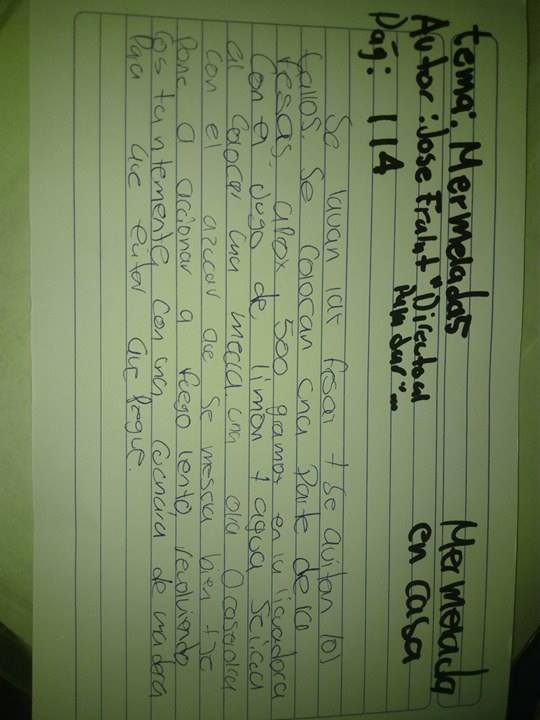 tema: Mermeladas
Mermelada
Autor: Jose Fruhut "Directo al
en casa
Pág: 114
Se lavan las fresas + se quitan los
tallos. Se colocan una Parte de la
fresas. aprox 500 gramos en la licuadora
con el Jugo de limon + agua
al colocar una mezcla una olla O casuela
con el azucar que se mescla bien + se
Pone a a fuego lento, revolviendo
constantemente con una cuchara de madera
Para que evitar que pegue.